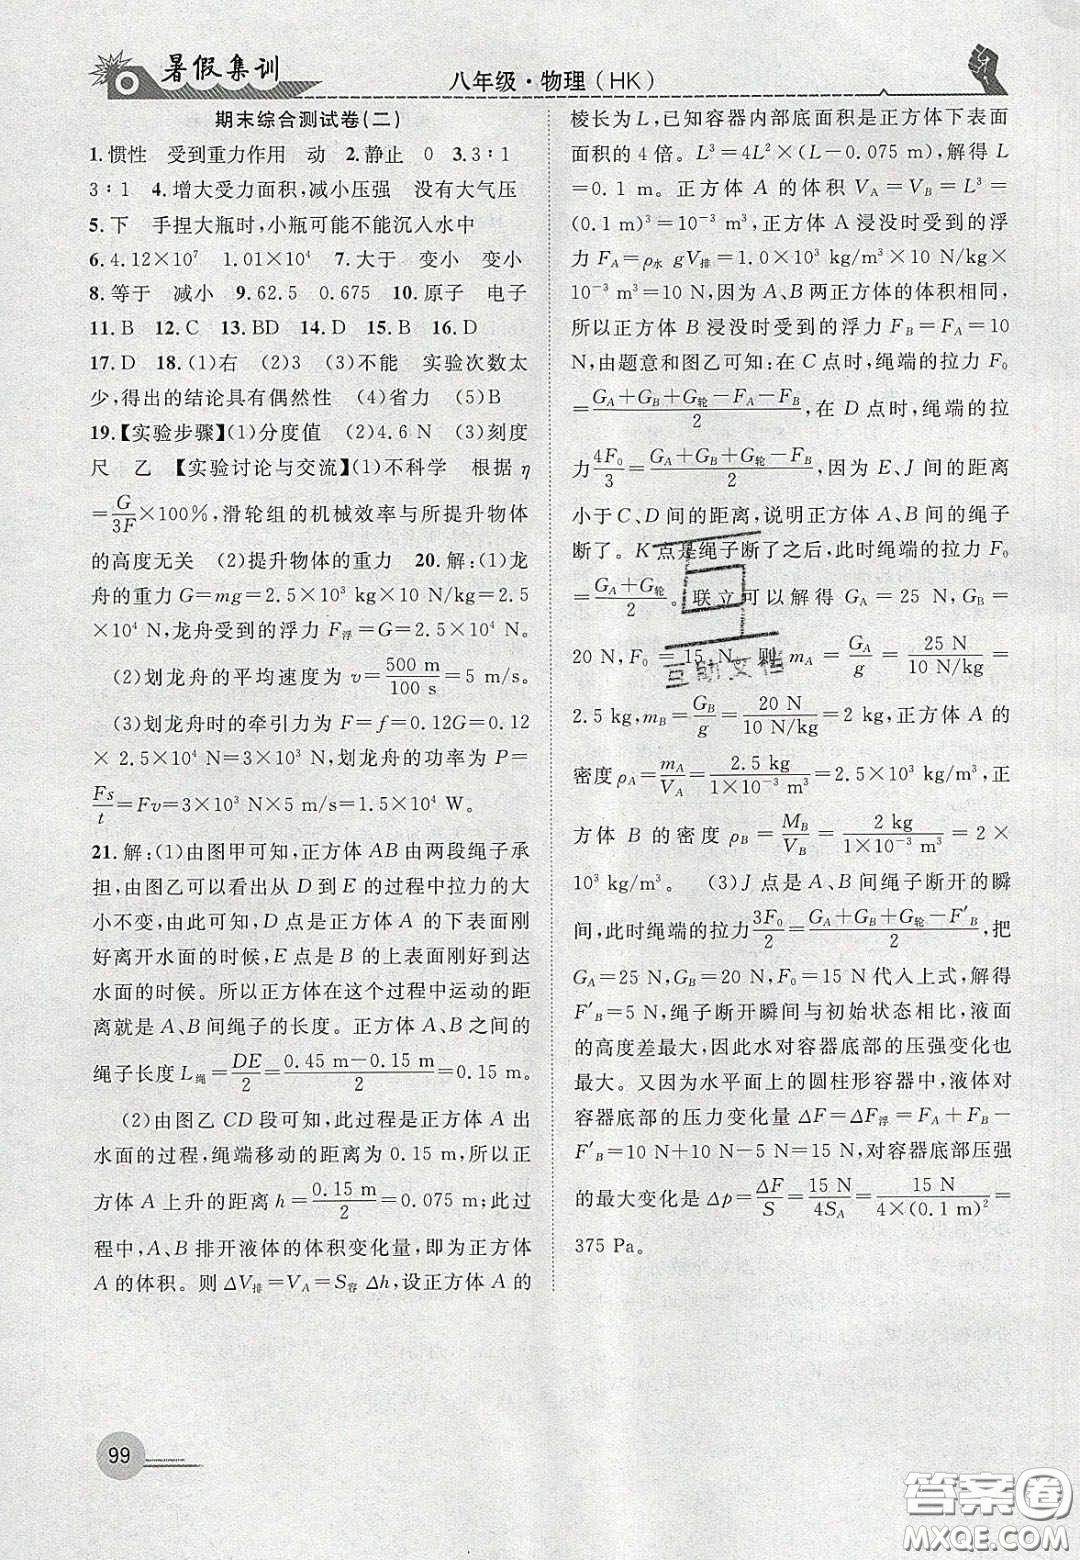 暑假集训
八年级·物理(HK)
期末综合测试卷(二)
1.惯性 受到重力作用 动 2.静止 0 3.3∶1
3∶1 4.增大受力面积,减小压强 没有大气压
5.下 手捏大瓶时,小瓶可能不能沉入水中
6.4.12×10⁷ 1.01×10⁴ 7.大于 变小 变小
8.等于 减小 9.62.5 0.675 10.原子 电子
11.B 12.C 13.BD 14.D 15.B 16.D
17.D 18.(1)右 (2)3 (3)不能 实验次数太
少,得出的结论具有偶然性 (4)省力 (5)B
19.【实验步骤】(1)分度值 (2)4.6 N (3)刻度
尺 乙 【实验讨论与交流】(1)不科学 根据 η
=G/3F×100%,滑轮组的机械效率与所提升物体
的高度无关 (2)提升物体的重力 20.解:(1)龙
舟的重力 G=mg=2.5×10³ kg×10 N/kg=2.5
×10⁴ N,龙舟受到的浮力 F浮=G=2.5×10⁴ N。
(2)划龙舟的平均速度为 v=500 m/100 s=5 m/s。
(3)划龙舟时的牵引力为 F=f=0.12G=0.12
×2.5×10⁴ N=3×10³ N,划龙舟的功率为 P=
Fs/t=Fv=3×10³ N×5 m/s=1.5×10⁴ W。
21.解:(1)由图甲可知,正方体 AB 由两段绳子承
担,由图乙可以看出从 D 到 E 的过程中拉力的大
小不变,由此可知,D 点是正方体 A 的下表面刚
好离开水面的时候,E 点是 B 的上表面刚好到达
水面的时候。所以正方体在这个过程中运动的距
离就是 A、B 间绳子的长度。正方体 A、B 之间的
绳子长度 L绳=DE/2=(0.45 m-0.15 m)/2=0.15 m。
(2)由图乙 CD 段可知,此过程是正方体 A 出
水面的过程,绳端移动的距离为 0.15 m,所以正
方体 A 上升的距离 h=0.15 m/2=0.075 m;此过
程中,A、B 排开液体的体积变化量,即为正方体
A 的体积。则 ΔV排=VA=S容 Δh,设正方体 A 的
棱长为 L,已知容器内部底面积是正方体下表面
面积的 4 倍。L³=4L²×(L-0.075 m),解得 L
=0.1 m。正方体 A 的体积 VA=VB=L³=
(0.1 m)³=10⁻³ m³,正方体 A 浸没时受到的浮
力 FA=ρ水 gV排=1.0×10³ kg/m³×10 N/kg×
10⁻³ m³=10 N,因为 A、B 两正方体的体积相同,
所以正方体 B 浸没时受到的浮力 FB=FA=10
N,由题意和图乙可知:在 C 点时,绳端的拉力 F₀
=(GA+GB+G轮-FA-FB)/2,在 D 点时,绳端的拉
力4F₀/3=(GA+GB+G轮-FB)/2,因为 E、J 间的距离
小于 C、D 间的距离,说明正方体 A、B 间的绳子
断了。K 点是绳子断了之后,此时绳端的拉力 F₀
=(GA+G轮)/2。联立可以解得 GA=25 N,GB=
20 N,F₀=15 N。则 mA=GA/g=25 N/10 N/kg=
2.5 kg,mB=GB/g=20 N/10 N/kg=2 kg,正方体 A 的
密度 ρA=mA/VA=2.5 kg/1×10⁻³ m³=2.5×10³ kg/m³,正
方体 B 的密度 ρB=MB/VB=2 kg/1×10⁻³ m³=2×
10³ kg/m³。 (3)J 点是 A、B 间绳子断开的瞬
间,此时绳端的拉力3F₀/2=(GA+GB+G轮-F′B)/2,把
GA=25 N,GB=20 N,F₀=15 N代入上式,解得
F′B=5 N,绳子断开瞬间与初始状态相比,液面
的高度差最大,因此水对容器底部的压强变化也
最大。又因为水平面上的圆柱形容器中,液体对
容器底部的压力变化量 ΔF=ΔF浮=FA+FB-
F′B=10 N+10 N-5 N=15 N,对容器底部压强
的最大变化是 Δp=ΔF/S=15 N/4SA=15 N/4×(0.1 m)²=
375 Pa。
互助文档
99
答案圈
MXQE.COM